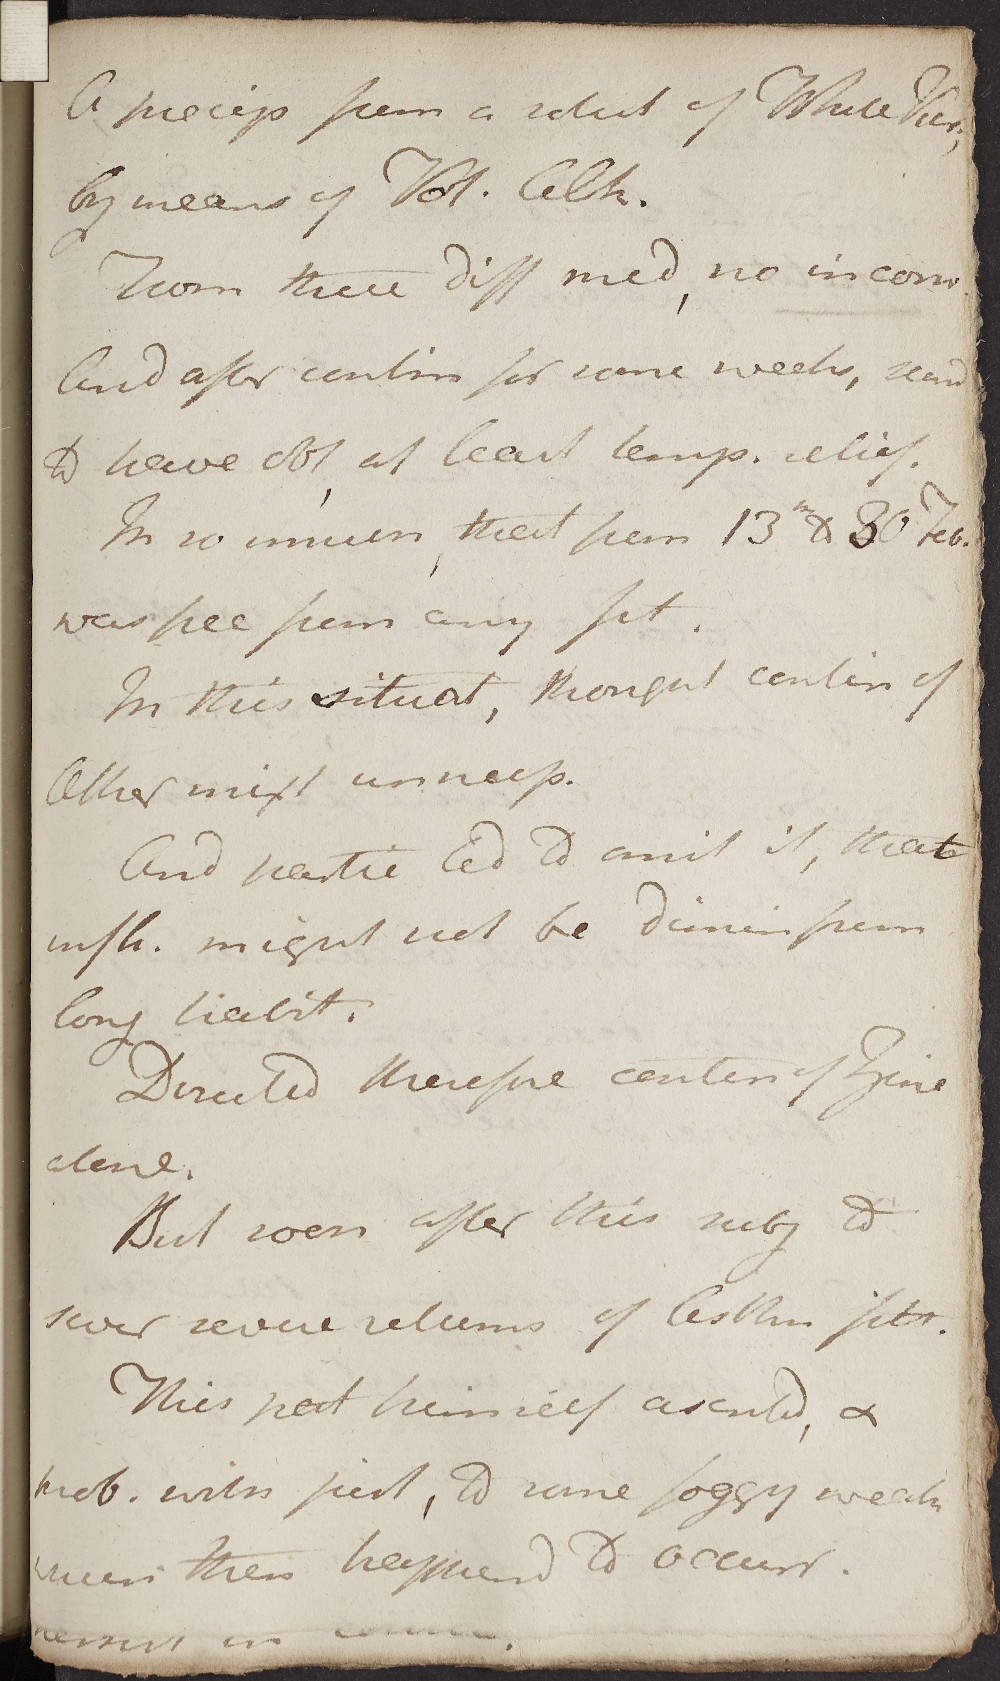 A precip from a solut of White Vitr,
by means of Vol. Alk.
From these diff med, no inconv
And after contin for some weeks, seemd
to have obt, at least temp. relief.
In so much, that from 13th to 30 Feb.
was free from any fit.
In this situat, thought contin of
Æther mixt unnecess.
And partic led to omit it, that
infl. might not be dimin from
long habit.
Directed therefore contin of Zinc
alone.
But soon after this subj to
sever severe returns of Asthm fits.
This pat himself ascribd, &
prob. with just, to some foggy weath
which then happend to occurr.